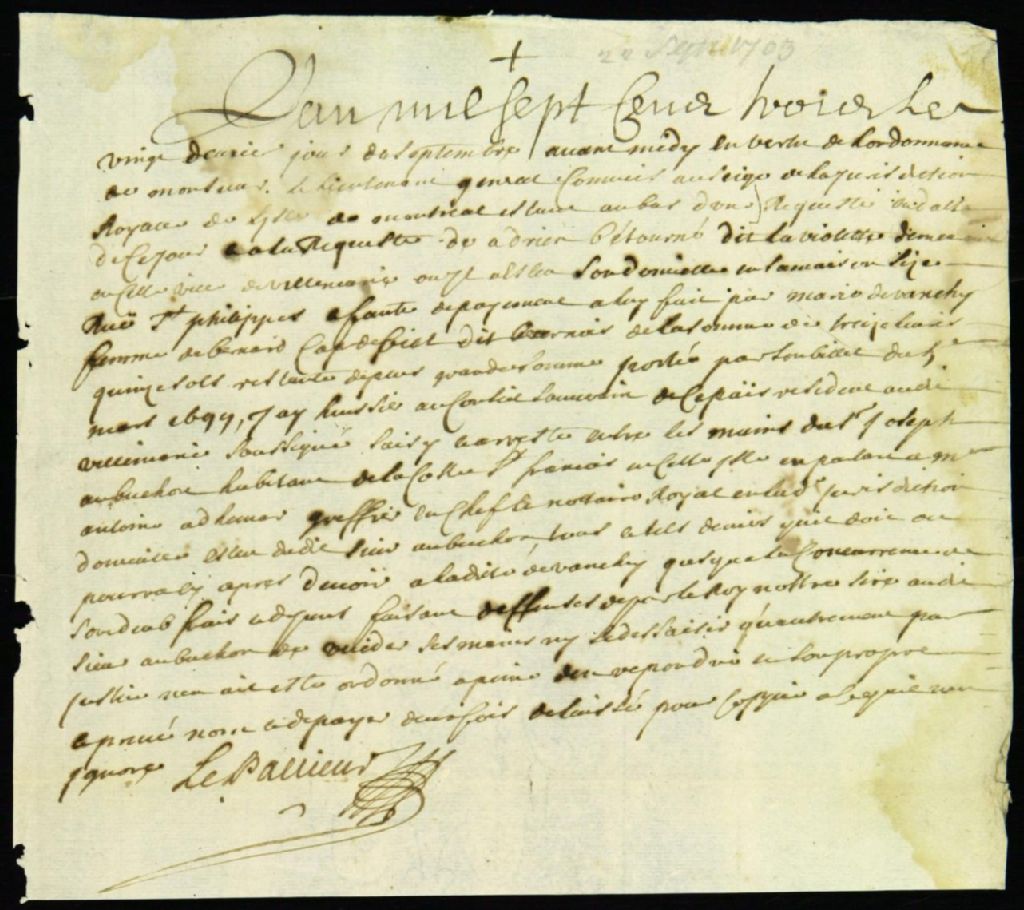 22 Septr 1703
L'an mil sept Cens trois Le
vingt deuxie jour de septembre avant midy en vertu de Lordonnance
de monsieur Le Lieutenant general Commis au seige de la Jurisdiction
Royalle de lysle de montreal estant au bas d'une Requeste
de Ce jour e a la Requeste de adrien bétourné dit la violette demeurant
en Cette ville de villemarie ou jl a son domicille en sa maison size
Ruë St philippes e faute de payement a luy fait par marie de vanchy
femme de bernard dit bearnais de la somme de treize livres
quinze sols restante de plus grande somme portée par son billet du
mars 1699, J'ay huissier au Conseil souverain de Ce païs resident audit
villemarie soussigné saisy e arresté entre les mains du Sr Joseph
aubuchon habitant de la Coste St francois en Cette jsle en parlant a Mre
antoine adhemar greffier en Chef e nottaire Royal en lad. jurisdiction
domicille esleu dudit sieur aubuchon, tous e tels deniers qu'il doit ou
pourra Cy apres devoir a ladite de vanchy jusques a la Concurrence de
son deub frais e depens faisant deffenses de par le Roy nostre sire audit
sieur aubuchon de vuider ses mains ny se dessaisir qu'autrement par
justice n'en ait esté ordonné a peine d'en repondre en son propre
e privé nom e de payer deux fois delaissé pour Coppie a Ce qu'il n'en
jgnore Le Pallieur